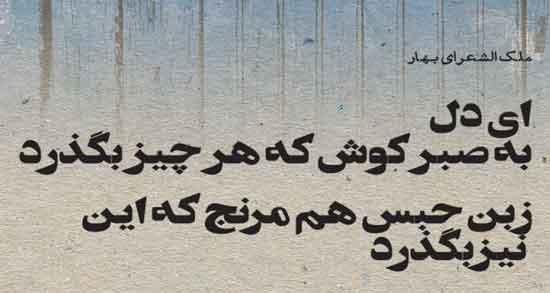 ملک الشعرای بهار
ای دل
به صبر کوش که هر چیز بگذرد
زین حبس هم مرنج که این
نیز بگذرد